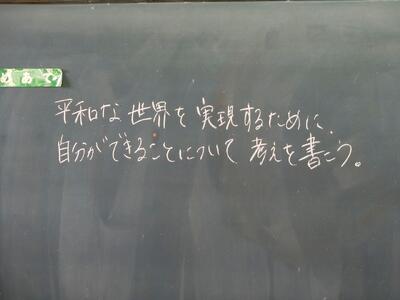 めあて
平和な世界を実現するために、
自分ができることについて考えを書こう。